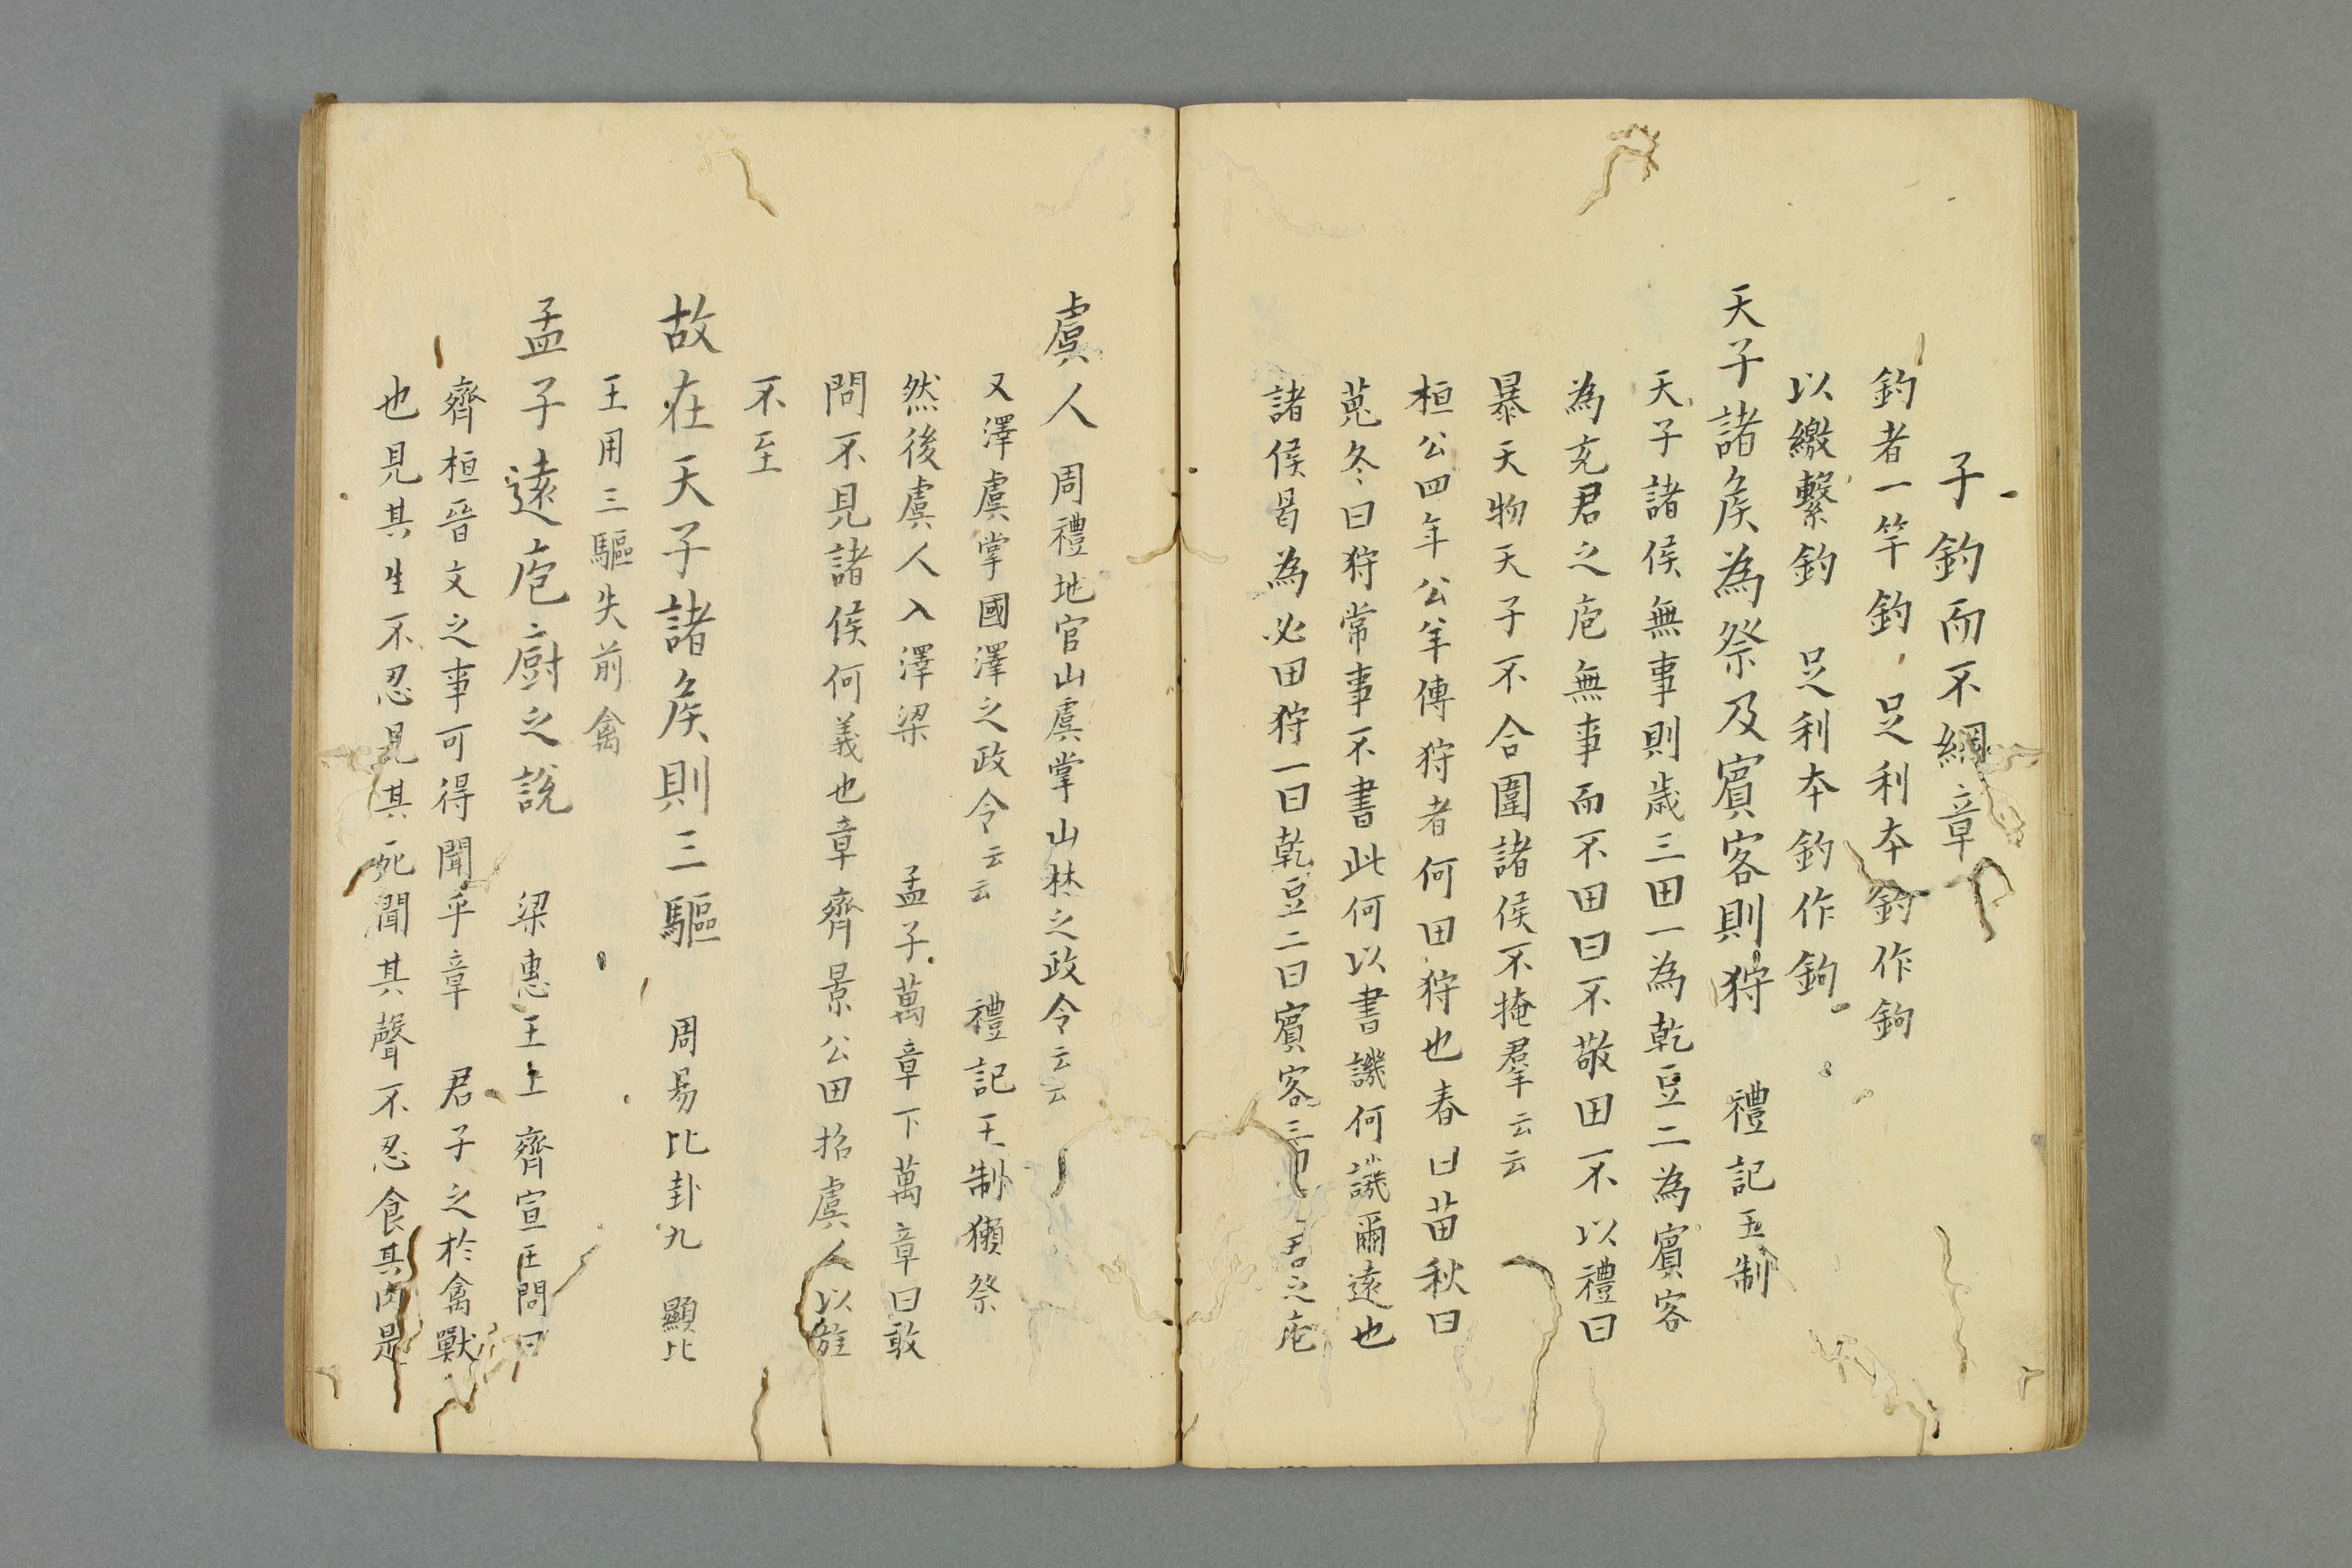 子釣而不綱章
釣者一竿釣　足利本釣作鉤
以繳繫釣　足利本釣作鉤
天子諸矦為祭及賓客則狩　禮記王制
天子諸侯無事則歳三田一為乾豆二為賓客
為充君之庖無事而不田曰不敬田不以禮曰
暴天物天子不合圍諸侯不掩羣云云
桓公四年公羊傳狩者何田狩也春曰苗秋曰
蒐冬曰狩常事不書此何以書譏何譏爾遠也
諸侯曷為必田狩一曰乾豆二曰賓客三曰君之庖
虞人　周禮地官山虞掌山林之政令云云
又澤虞掌國澤之政令云云　禮記王制獺祭
然後虞人入澤梁　孟子萬章下萬章曰敢
問不見諸侯何義也章齊景公田招虞人以旌
不至
故在天子諸矦則三驅　周易比卦九　顯比
王用三驅失前禽
孟子遠庖廚之說　梁惠王上齊宣王問曰
齊桓晉文之事可得聞乎章　君子之於禽獸
也見其生不忍見其死聞其聲不忍食其肉是